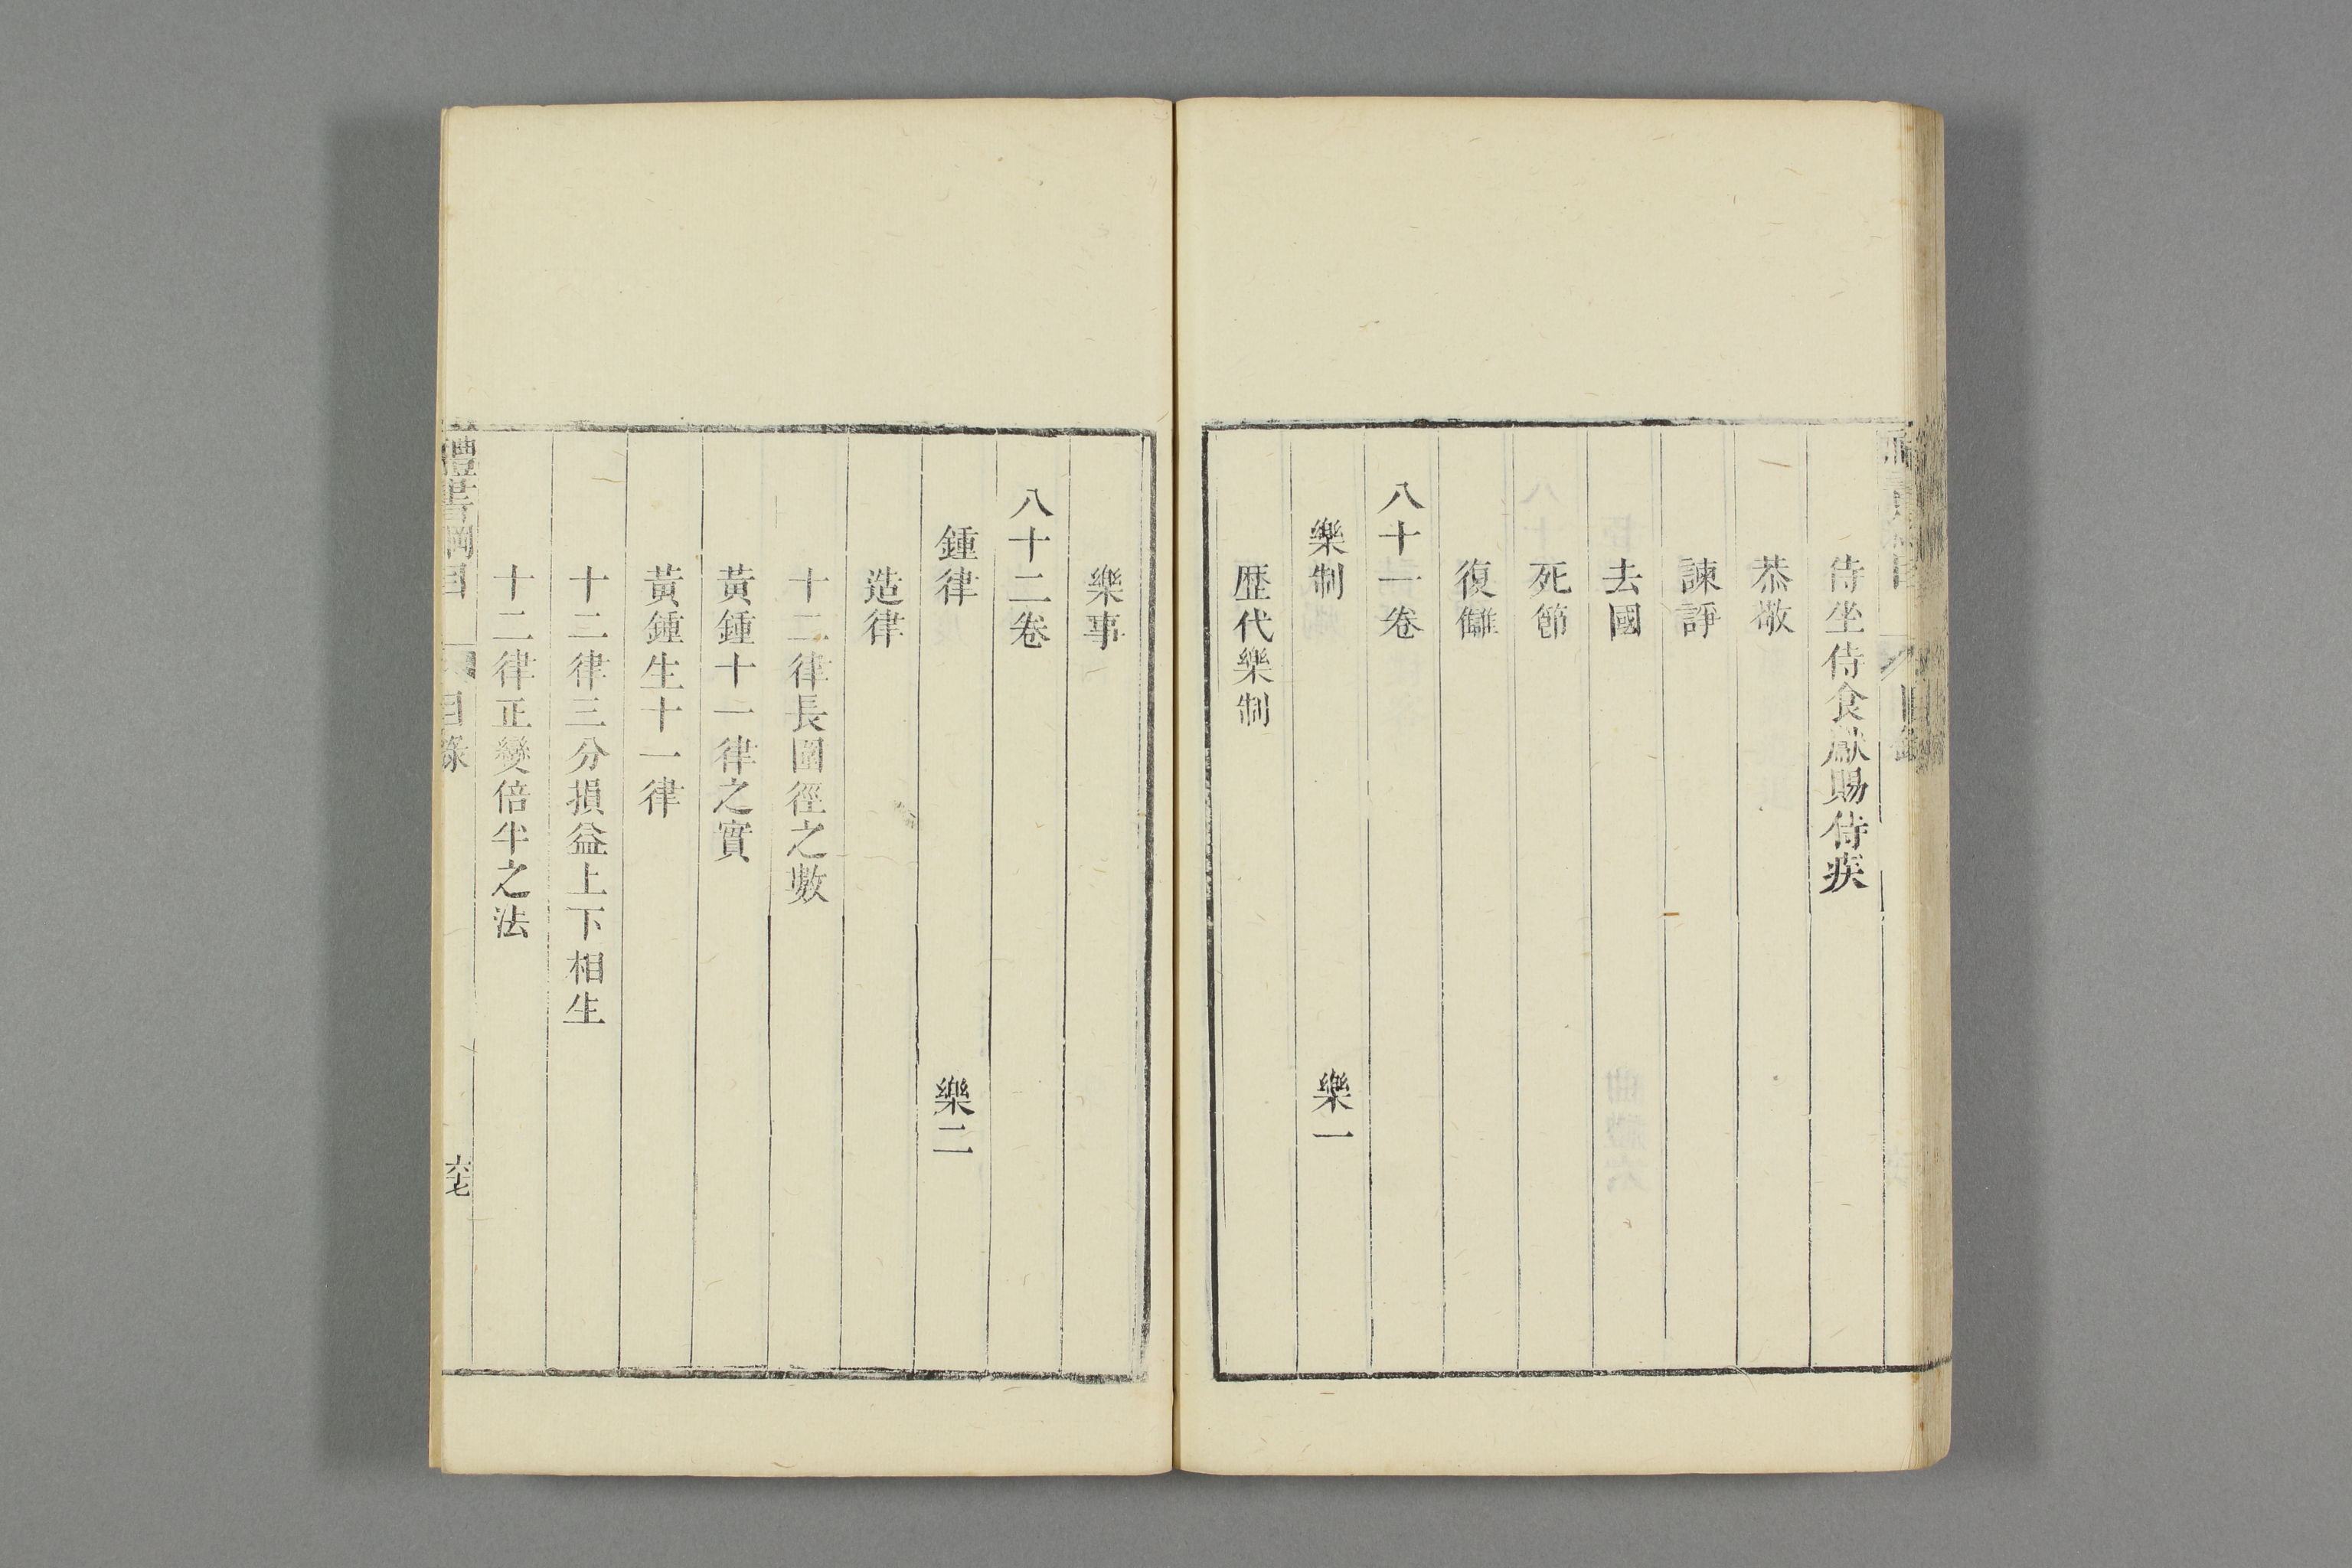 侍坐侍食獻賜侍疾
恭敬
諫諍
去國
死節
復讎
八十一卷
樂制 樂一
歴代樂制
樂事
八十二卷
鍾律 樂二
造律
十二律長圍徑之數
黃鍾十一律之實
黃鍾生十一律
十二律三分損益上下相生
十二律正變倍半之法
禮書綱目 目錄 六七